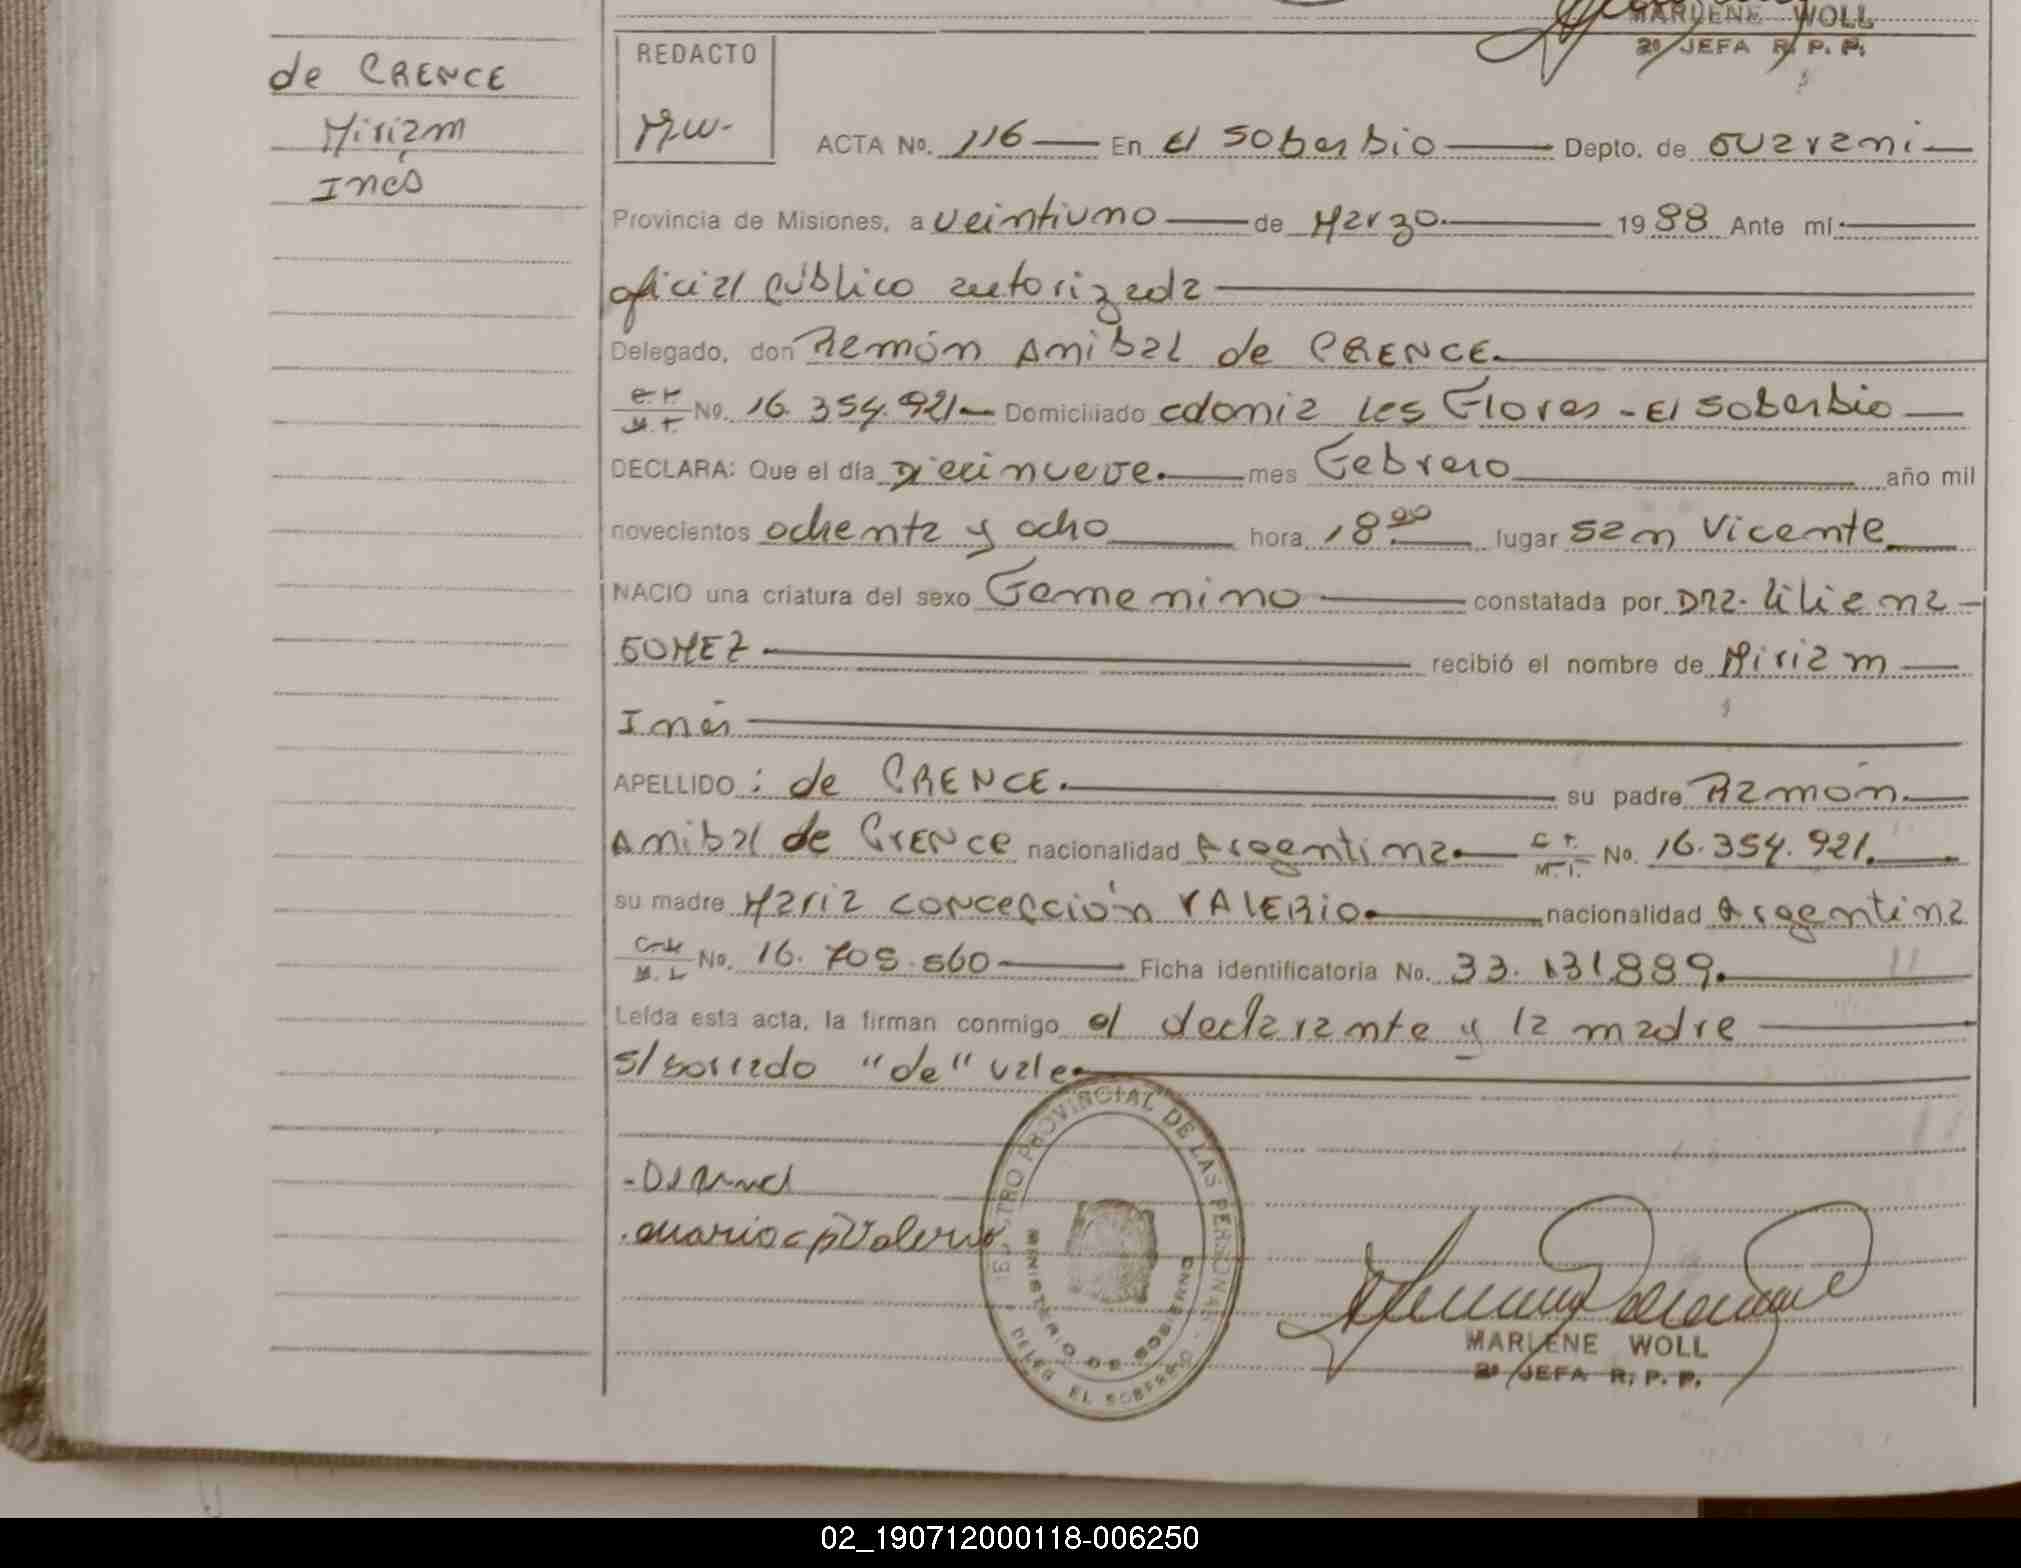 MARLENE WOLL
2ª JEFA R. P. P.
de CRENCE
Miriam
Inés
REDACTO
MW-
ACTA No. 116 En El Soberbio Depto. de Guarani
Provincia de Misiones, a veintiuno de Marzo 1988 Ante mi
oficial público autorizada
Delegado, don Ramón Anibal de CRENCE.
No. 16.354.921 Domiciliado colonia Las Flores - El Soberbio
DECLARA: Que el día Diecinueve. mes Febrero año mil
novecientos ochenta y ocho hora 18.00 lugar San Vicente
NACIO una criatura del sexo Femenino constatada por Dra. Liliana
GOMEZ recibió el nombre de Miriam
Inés
APELLIDO : de CRENCE. su padre Ramón
Anibal de Crence nacionalidad Argentina. No. 16.354.921.
su madre Maria Concepción VALERIO. nacionalidad Argentina
No. 16.708.560 Ficha identificatoria No. 33.131.889.
Leída esta acta, la firman conmigo el declarante y la madre
s/borrado "de" vale.
REGISTRO PROVINCIAL DE LAS PERSONAS
MINISTERIO DE GOBIERNO
DELEG. EL SOBERBIO
MARLENE WOLL
2ª JEFA R. P. P.
02_190712000118-006250